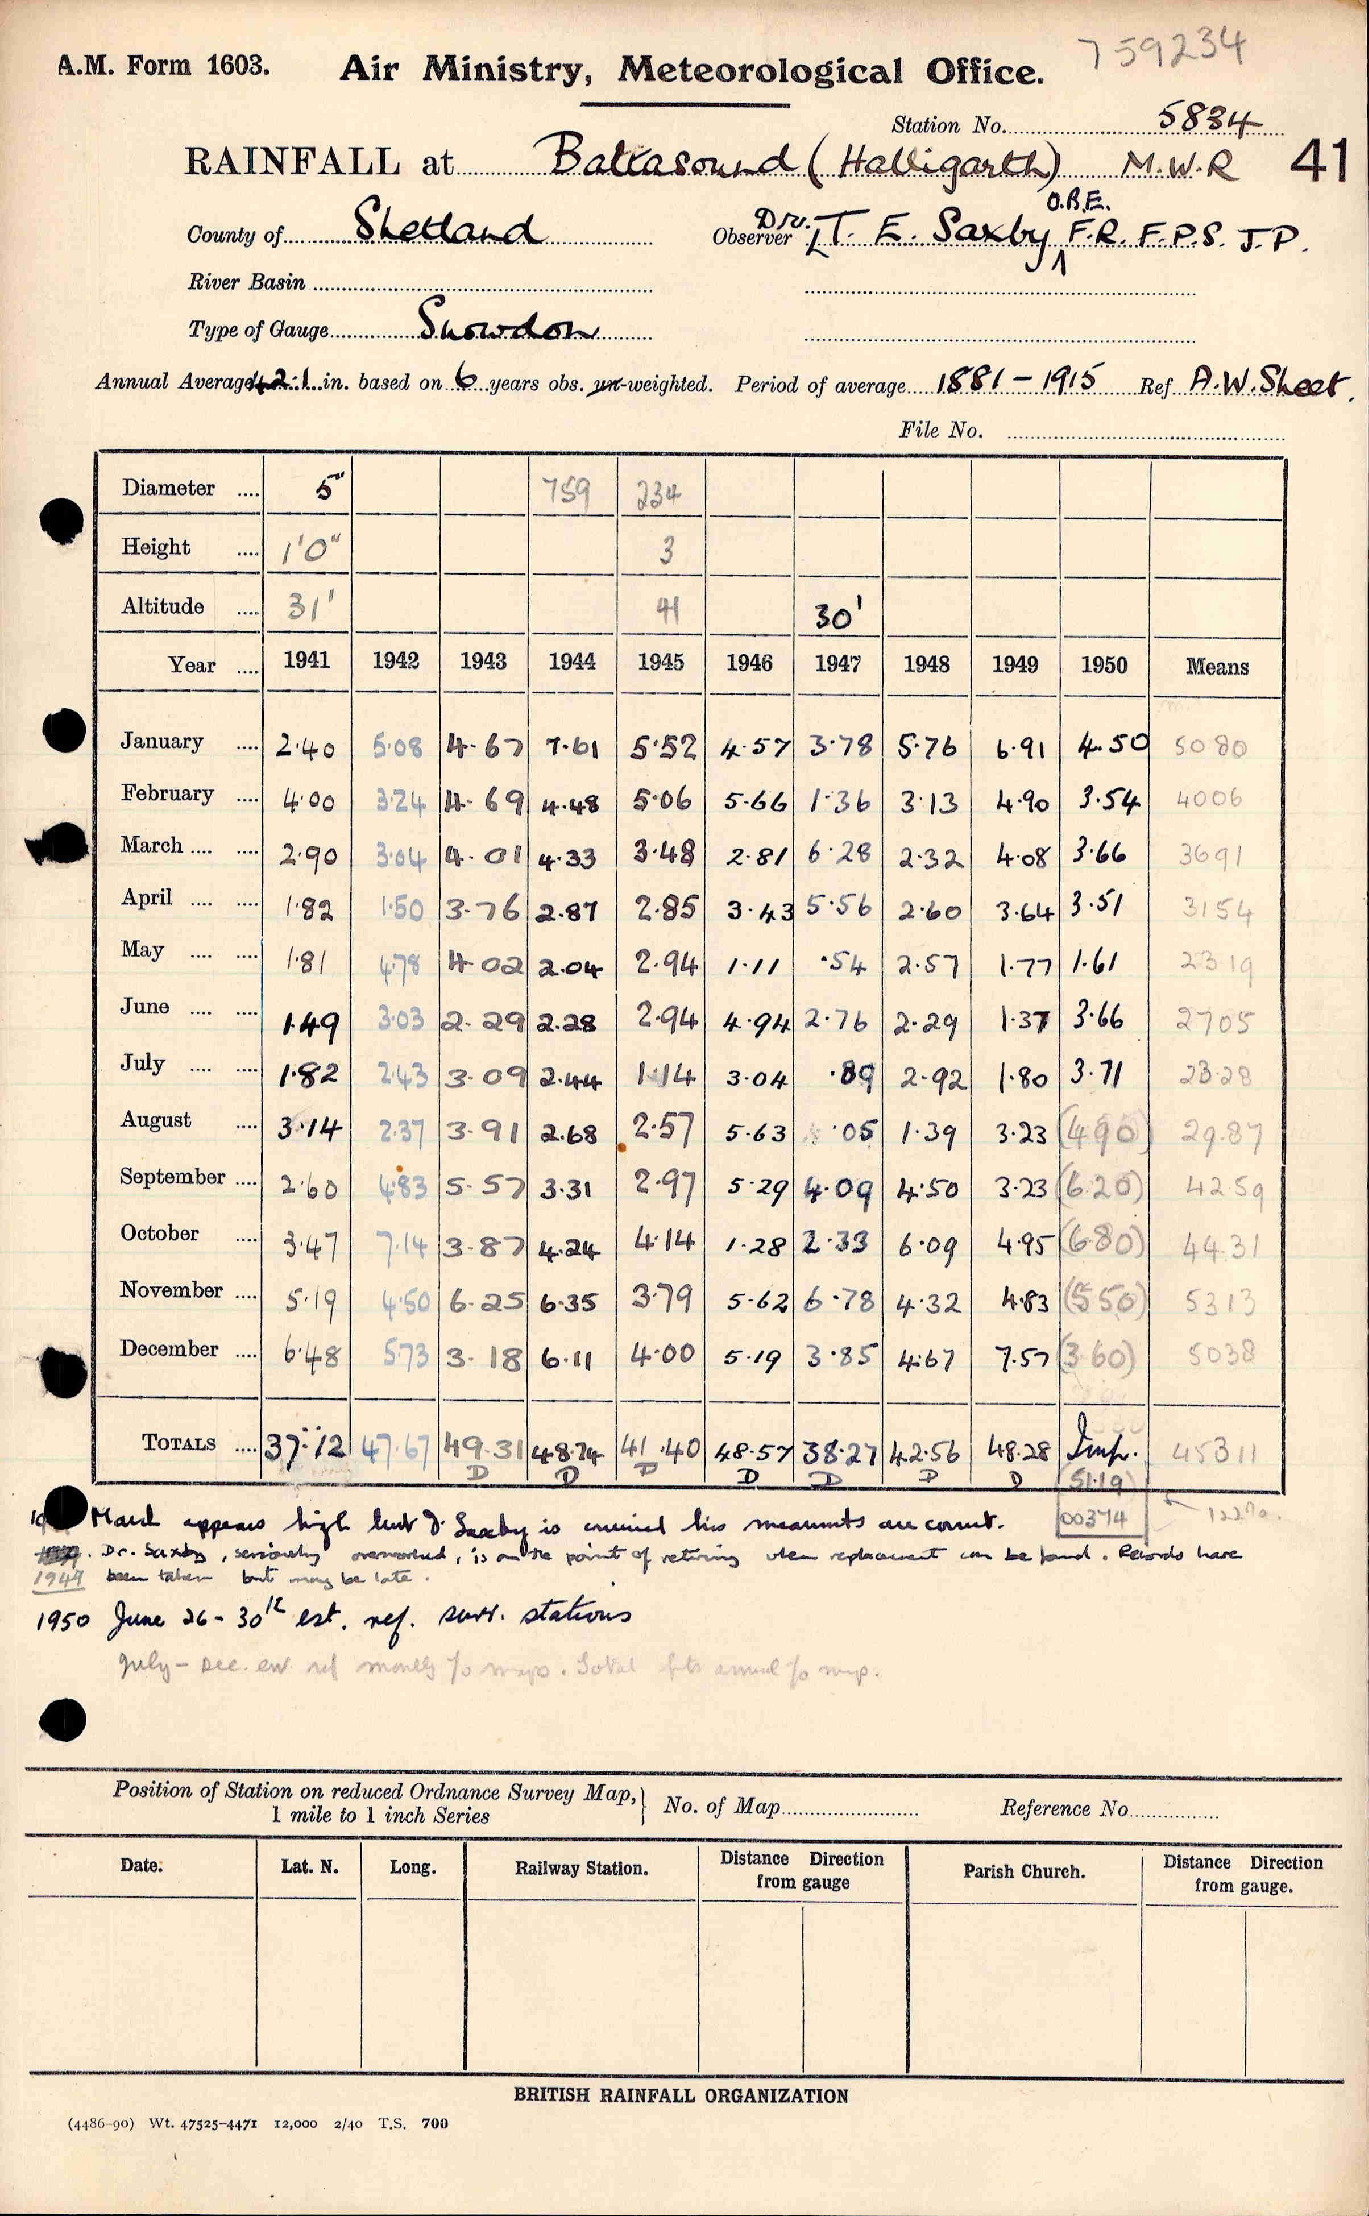 759234
A.M. Form 1603. Air Ministry, Meteorological Office.
Station No. 5834
RAINFALL at Baltasound (Halligarth) M.W.R 41
County of Shetland Observer Dr. T. E. Saxby O.B.E. F.R.F.P.S. J.P.
River Basin
Type of Gauge Snowdon
Annual Average 42.1 in. based on 6 years obs. un-weighted. Period of average 1881-1915 Ref A.W. Sheet.
File No.
Diameter .... 5" 759 234
Height .... 1'0" 3
Altitude .... 31' 41 30'
Year .... 1941 1942 1943 1944 1945 1946 1947 1948 1949 1950 Means
January .... 2.40 5.08 4.67 7.61 5.52 4.57 3.78 5.76 6.91 4.50 5080
February .... 4.00 3.24 4.69 4.48 5.06 5.66 1.36 3.13 4.90 3.54 4006
March .... .... 2.90 3.04 4.01 4.33 3.48 2.81 6.28 2.32 4.08 3.66 3691
April .... .... 1.82 1.50 3.76 2.87 2.85 3.43 5.56 2.60 3.64 3.51 3154
May .... .... 1.81 4.78 4.02 2.04 2.94 1.11 .54 2.57 1.77 1.61 2319
June .... .... 1.49 3.03 2.29 2.28 2.94 4.94 2.76 2.29 1.37 3.66 2705
July .... .... 1.82 2.43 3.09 2.44 1.14 3.04 .89 2.92 1.80 3.71 23.28
August .... 3.14 2.37 3.91 2.68 2.57 5.63 .05 1.39 3.23 (490) 29.87
September .... 2.60 4.83 5.57 3.31 2.97 5.29 4.09 4.50 3.23 (6.20) 42.59
October .... 3.47 7.14 3.87 4.24 4.14 1.28 2.33 6.09 4.95 (680) 44.31
November .... 5.19 4.50 6.25 6.35 3.79 5.62 6.78 4.32 4.83 (550) 5313
December .... 6.48 5.73 3.18 6.11 4.00 5.19 3.85 4.67 7.57 (3.60) 5038
TOTALS .... 37.12 47.67 49.31 48.74 41.40 48.57 38.27 42.56 48.28 Imp. 45311
D D D D D D D (51.19)
00374 122%
March appears high but Dr Saxby is convinced his measurements are correct.
Dr. Saxby, seriously overworked, is on the point of retiring when replacement can be found. Records have
1949 been taken but may be late.
1950 June 26-30th est. ref. surr. stations
July - Dec. ref % maps. Total fits annual % map.
Position of Station on reduced Ordnance Survey Map, } No. of Map Reference No.
1 mile to 1 inch Series
Date. Lat. N. Long. Railway Station. Distance Direction from gauge Parish Church. Distance Direction from gauge.
BRITISH RAINFALL ORGANIZATION
(4486-90) Wt. 47525-4471 12,000 2/40 T.S. 700